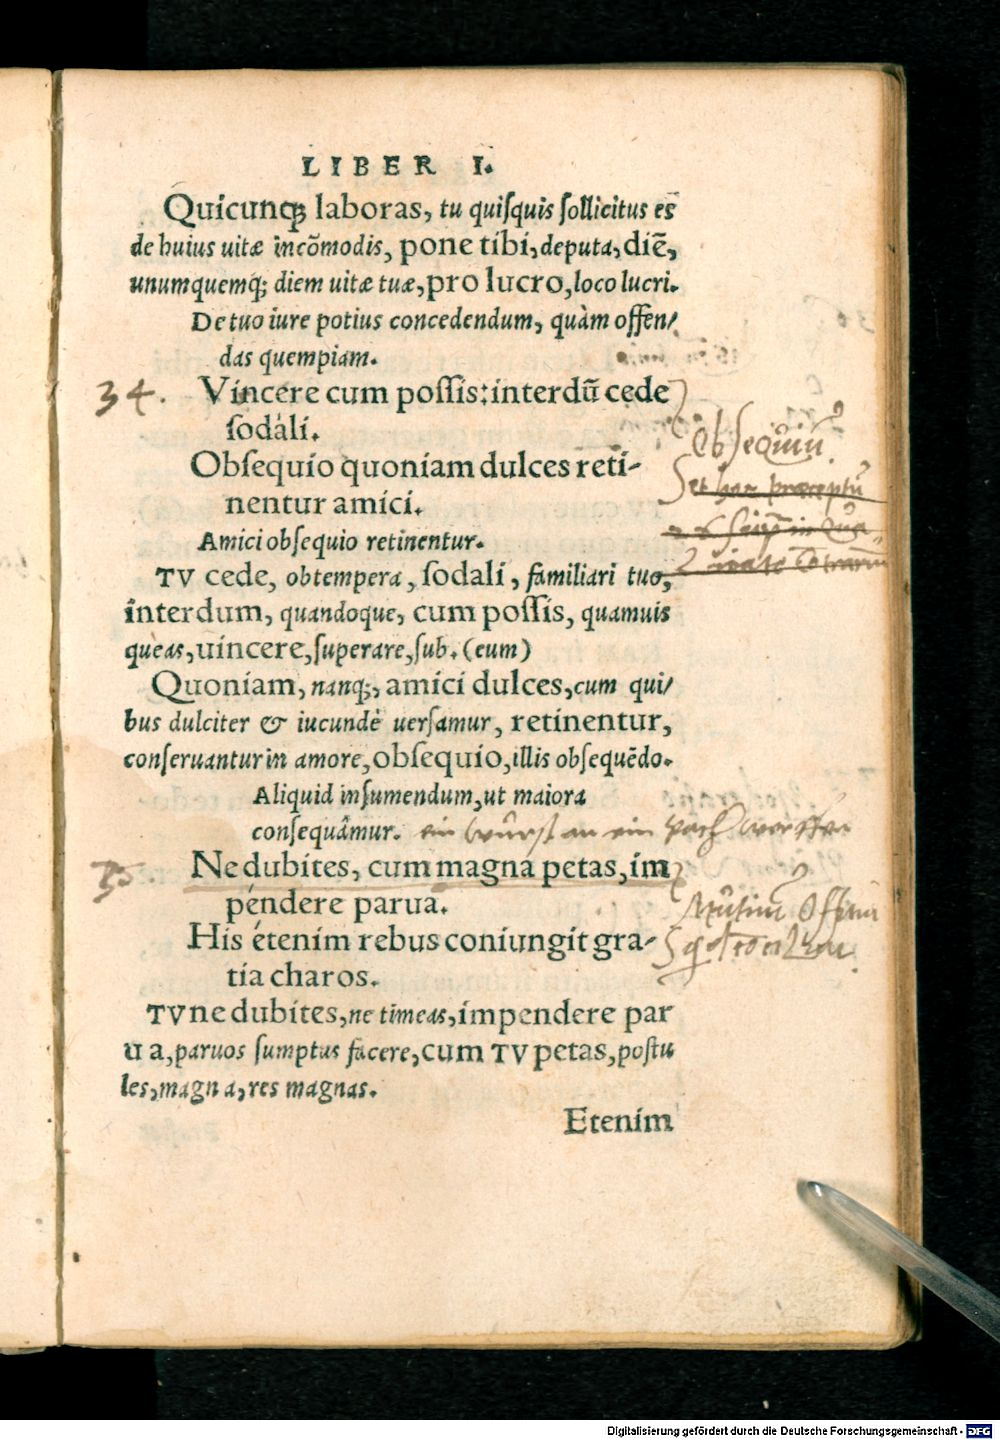 LIBER I.
Quicunq; laboras, tu quiſquis ſollicitus es
de huius uitæ incõmodis, pone tibi, deputa, diẽ,
unumquemq; diem uitæ tuæ, pro lucro, loco lucri.
De tuo iure potius concedendum, quàm offen/
das quempiam.
34. Vincere cum poſſis: interdũ cede
ſodali.
Obſequiũ
Obſequio quoniam dulces reti-
nentur amici.
Amici obſequio retinentur.
TV cede, obtempera, ſodali, familiari tuo,
interdum, quandoque, cum poſſis, quamuis
queas, uincere, ſuperare, ſub. (eum)
Quoniam, nanq;, amici dulces, cum qui/
bus dulciter & iucundè uerſamur, retinentur,
conſeruantur in amore, obſequio, illis obſequẽdo.
Aliquid inſumendum, ut maiora
conſequãmur. ein wurſt an ein pach werffen
35. Ne dubites, cum magna petas, im
péndere parua.
His étenim rebus coniungit gra-
tia charos.
TV ne dubites, ne timeas, impendere par
ua, paruos ſumptus facere, cum TV petas, poſtu
les, magna, res magnas.
Etenim
Digitalisierung gefördert durch die Deutsche Forschungsgemeinschaft - DFG